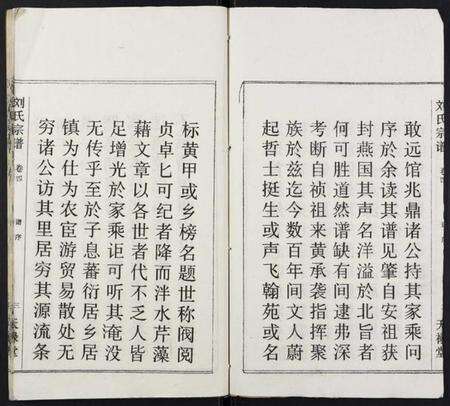 刘氏宗谱
卷四
天禄堂
敢远馆兆鼎诸公持其家乘问
序於余读其谱见肇自安祖获
封燕国其声名洋溢於北旨者
何可胜道然谱缺有间逮弗深
考断自祯祖来黄承袭指挥聚
族於兹迄今数百年间文人蔚
起哲士挺生或声飞翰苑或名
标黄甲或乡榜名题世称阀阅
贞卓匕可纪者降而泮水芹藻
藉文章以各世者代不乏人皆
足增光於家乘讵可听其淹没
无传乎至於子息蕃衍居乡居
镇为仕为农宦游贸易散处无
穷诸公访其里居穷其源流条
刘氏宗谱
卷四
谱序
禄堂